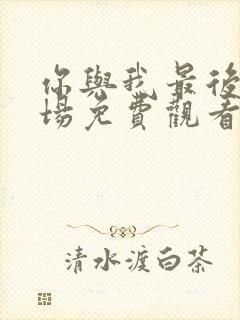 你與我最後
場免費觀看
清水渡白茶